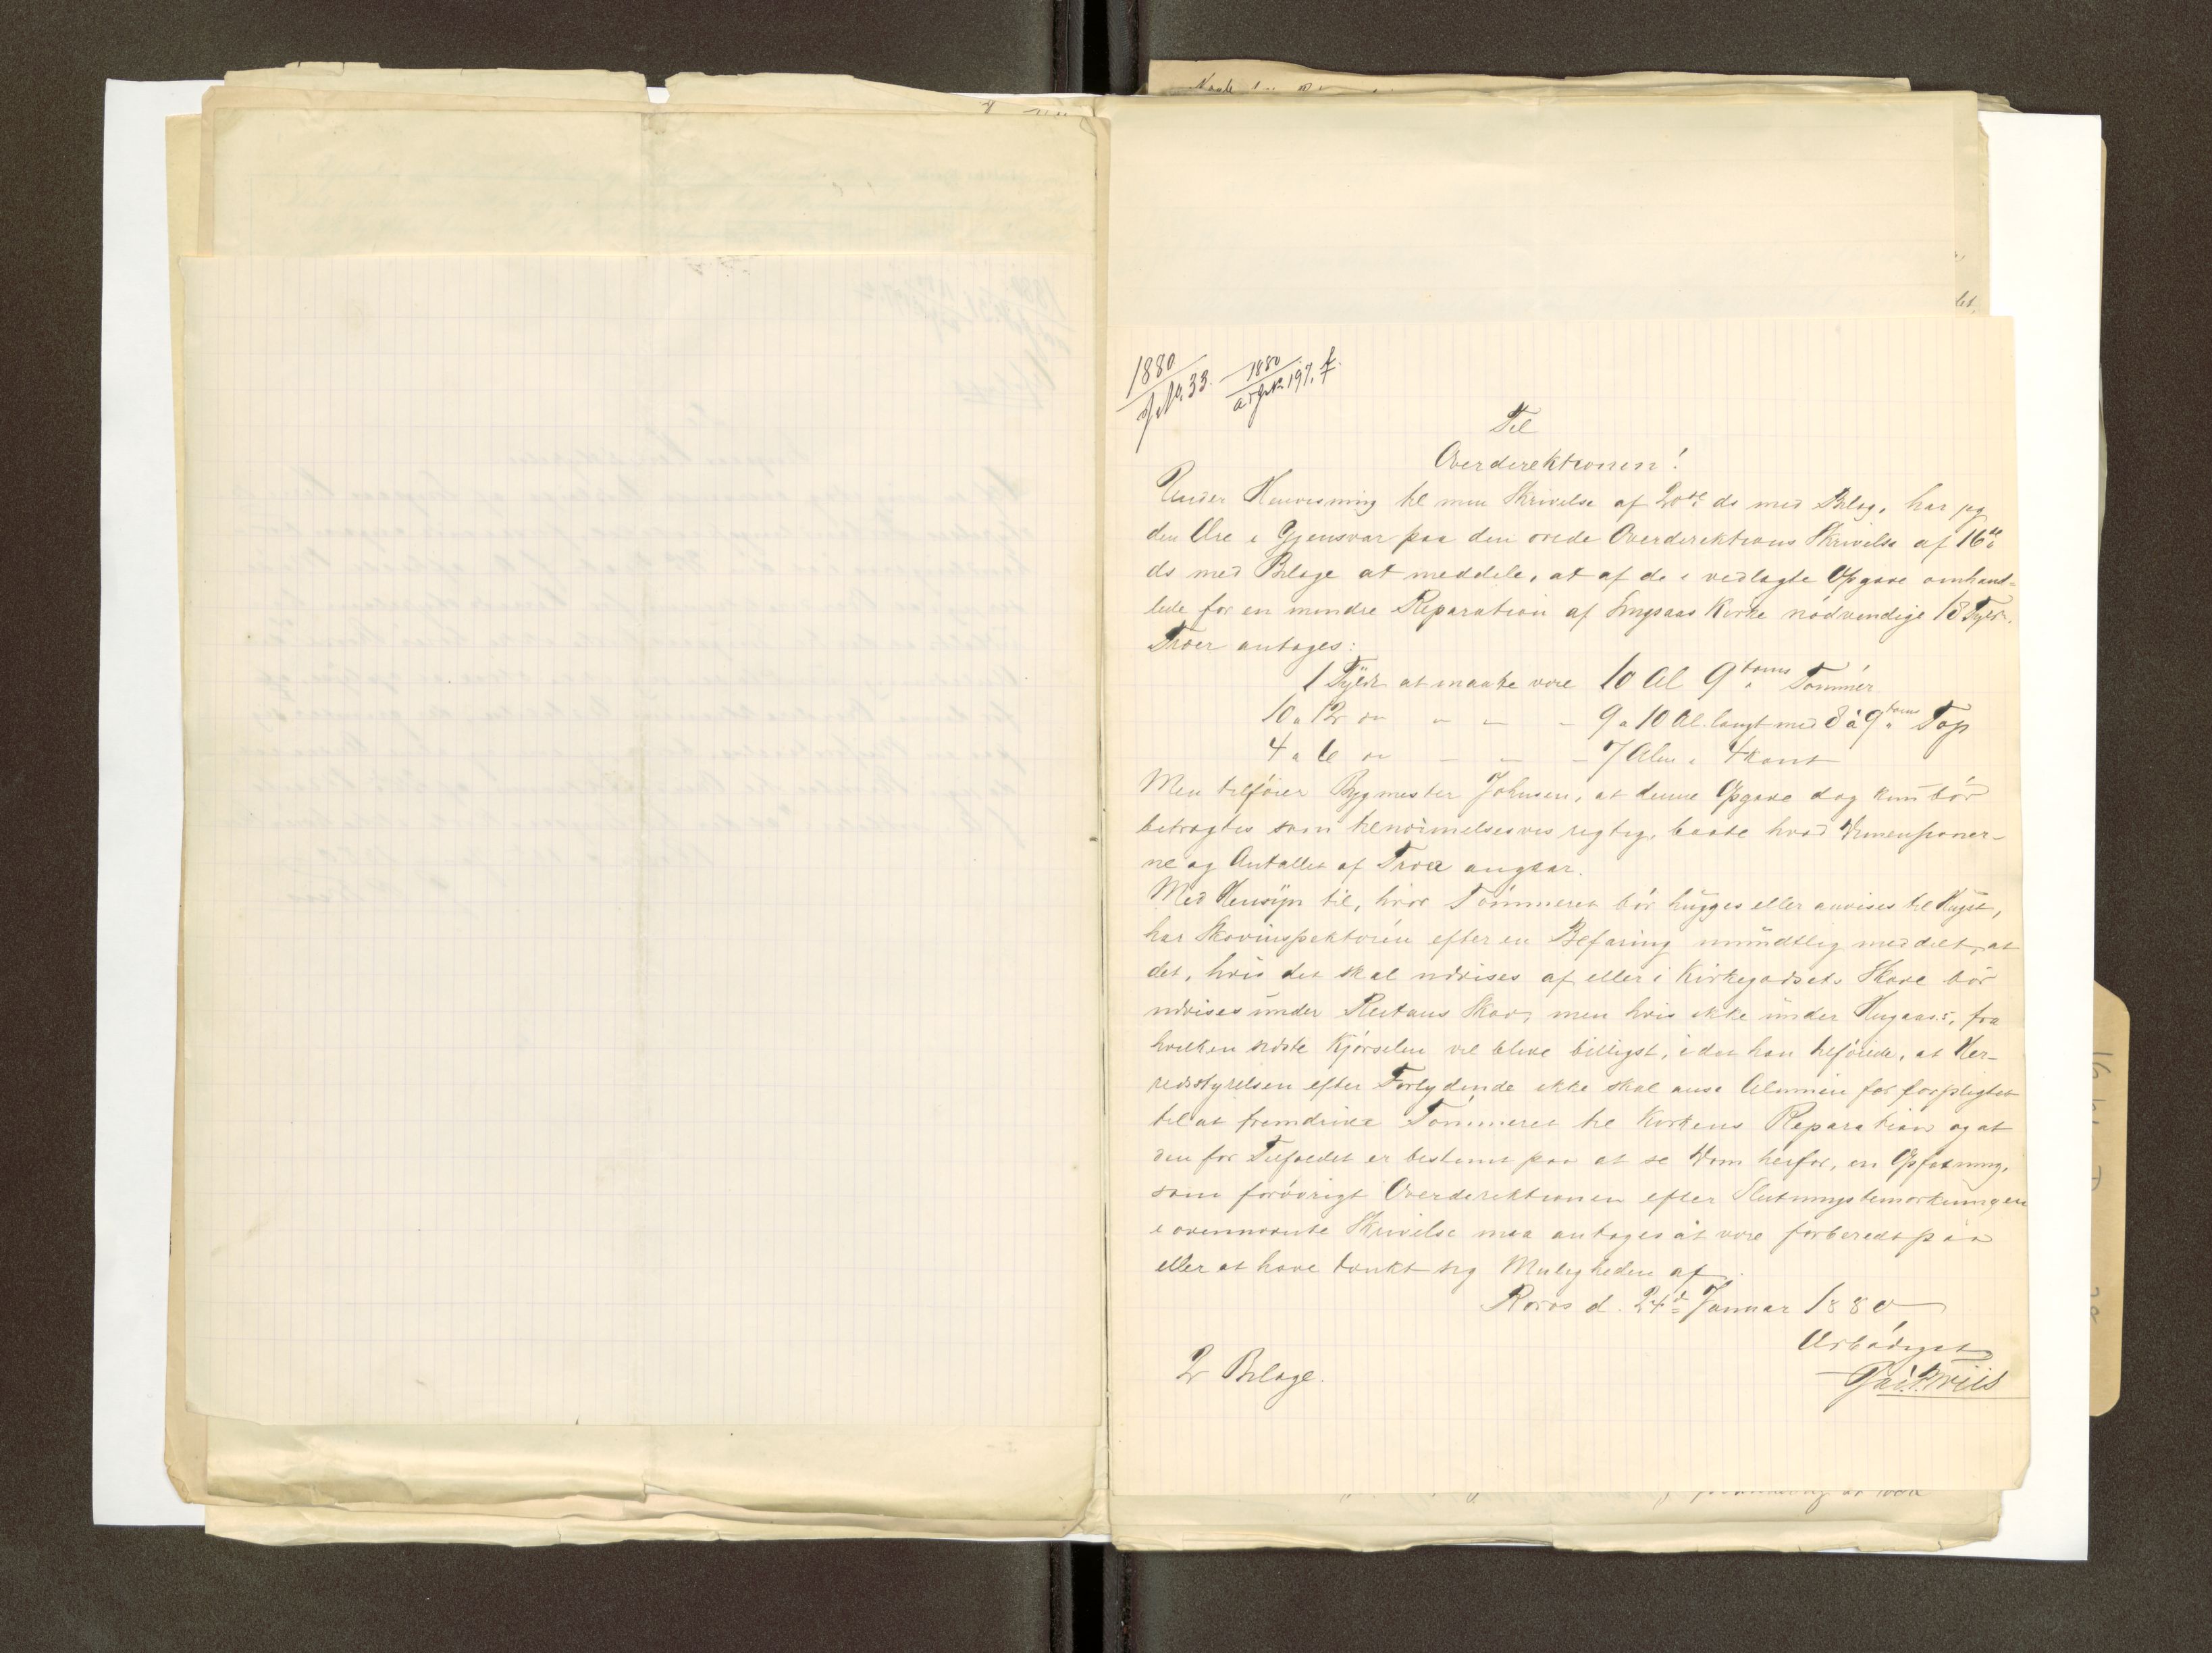 1880
No. 33.
1880
197.
Til
Overdirektionen!
Under Henvisning til min Skrivelse af 20de ds med Bilag, har jeg
den Ære i Gjensvar paa den ærede Overdirektions Skrivelse af 16de
ds med Bilage at meddele, at af de i vedlagte Opgave omhand-
lede for en mindre Reparation af Kirke nødvendige 18 Tylvt.
Træer antages:
1 Tylvt at maatte være 10 Al 9 toms Tømmer
10 a 12 do - - - 9 a 10 Al. langt med 8 à 9 toms Top
4 a 6 do - - - 7 Alen i 4kant
Men tilføier Bygmester Johnsen, at denne Opgave dog kun bør
betragtes som tilnærmelsesvis rigtig, baade hvad Dimensioner-
ne og Antallet af Træer angaar.
Med Hensyn til, hvor Tømmeret bør hugges eller anvises til Hugst,
har Skovinspektøren efter en Befaring mundtlig meddelt, at
det, hvis det skal udvises af eller i Kirkegodsets Skove bør
udvises under Skov, men hvis ikke under fra
hvilken sidste Kjørselen vil blive billigst, idet han tilføiede, at Her-
redsstyrelsen efter Forlydende ikke skal anse Almuen for forpligtet
til at fremdrive Tømmeret til Kirkens Reparation og at
den for Tilfældet er bestemt paa at se Dom herfor, en Opfatning,
som forøvrigt Overdirektionen efter Slutningsbemærkningen
i ovennævnte Skrivelse maa antages at være forberedt paa
eller at have tænkt sig Muligheden af.
Røros d. 24de Januar 1880
Ærbødigst
2 Bilage.